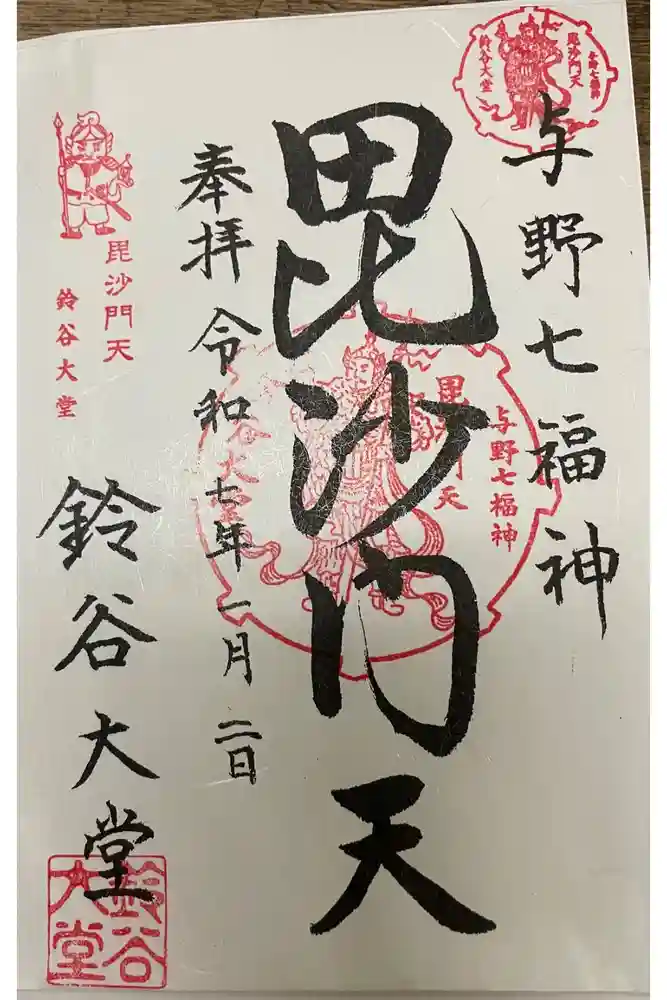 与野七福神
毘沙門天
奉拝 令和七年一月二日
鈴谷大堂
与野七福神
毘沙門天
鈴谷大堂
与野七福神
毘沙門天
鈴谷大堂
毘沙門天
鈴谷大堂
鈴谷
大堂